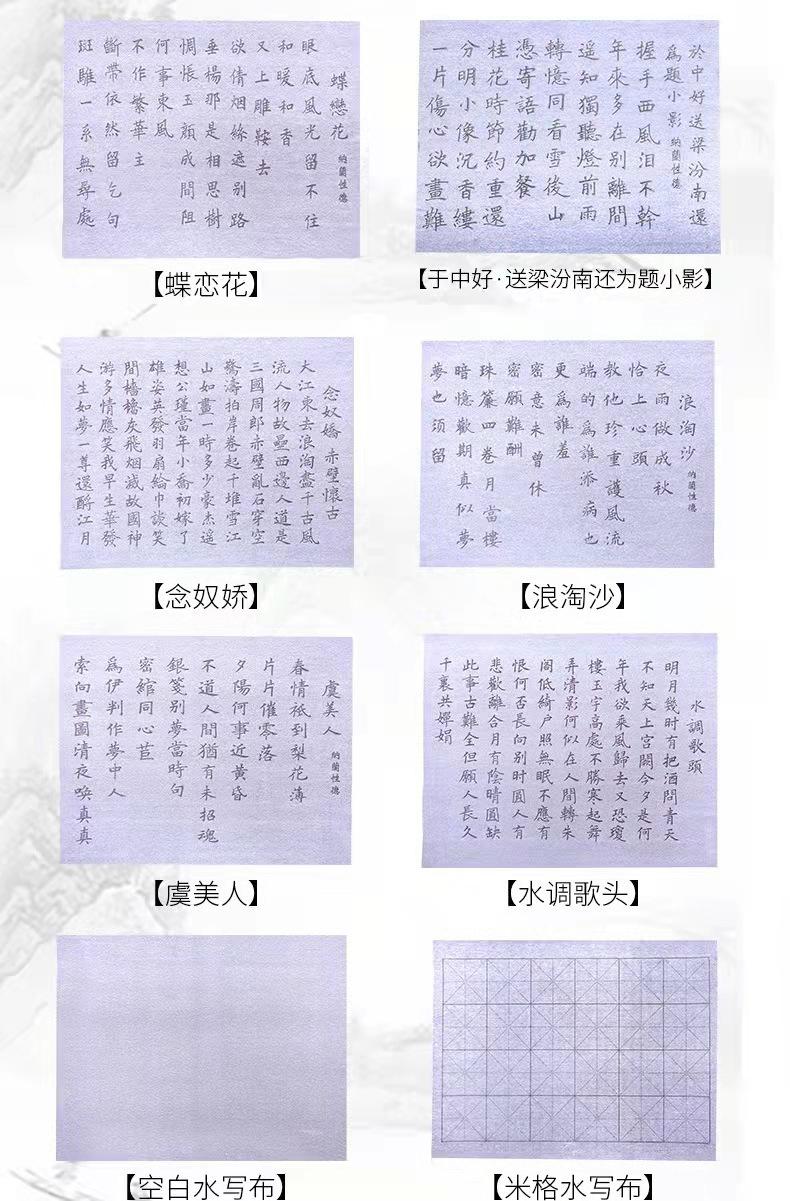 蝶戀花 納蘭性德
眼底風光留不住
和暖和香
又上雕鞍去
欲倩烟絲遮别路
垂楊那是相思樹
惆悵玉顔成間阻
何事東風
不作繁華主
斷帶依然留乞句
斑騅一系無尋處
【蝶恋花】
於中好送梁汾南還
爲題小影 納蘭性德
握手西風泪不幹
年來多在别離間
遥知獨聽燈前雨
轉憶同看雪後山
憑寄語勸加餐
桂花時節約重還
分明小像沉香縷
一片傷心欲畫難
【于中好·送梁汾南还为题小影】
念奴嬌 赤壁懷古
大江東去浪淘盡千古風
流人物故壘西邊人道是
三國周郎赤壁亂石穿空
驚濤拍岸卷起千堆雪江
山如畫一時多少豪杰遥
想公瑾當年小喬初嫁了
雄姿英發羽扇綸巾談笑
間檣櫓灰飛烟滅故國神
游多情應笑我早生華發
人生如夢一尊還酹江月
【念奴娇】
浪淘沙 納蘭性德
夜雨做成秋
恰上心頭
教他珍重護風流
端的爲誰添病也
更爲誰羞
密意未曾休
密願難酬
珠簾四卷月當樓
暗憶歡期真似夢
夢也须留
【浪淘沙】
虞美人 納蘭性德
春情祇到梨花薄
片片催零落
夕陽何事近黄昏
不道人間猶有未招魂
銀箋别夢當時句
密綰同心苣
爲伊判作夢中人
索向畫圖清夜唤真真
【虞美人】
水調歌頭
明月幾时有把酒問青天
不知天上宫闕今夕是何
年我欲乘風歸去又恐瓊
樓玉宇高處不勝寒起舞
弄清影何似在人間轉朱
閣低綺户照無眠不應有
恨何否長向别时圓人有
悲歡離合月有陰晴圓缺
此事古難全但願人長久
千裏共嬋娟
【水调歌头】
【空白水写布】
【米格水写布】